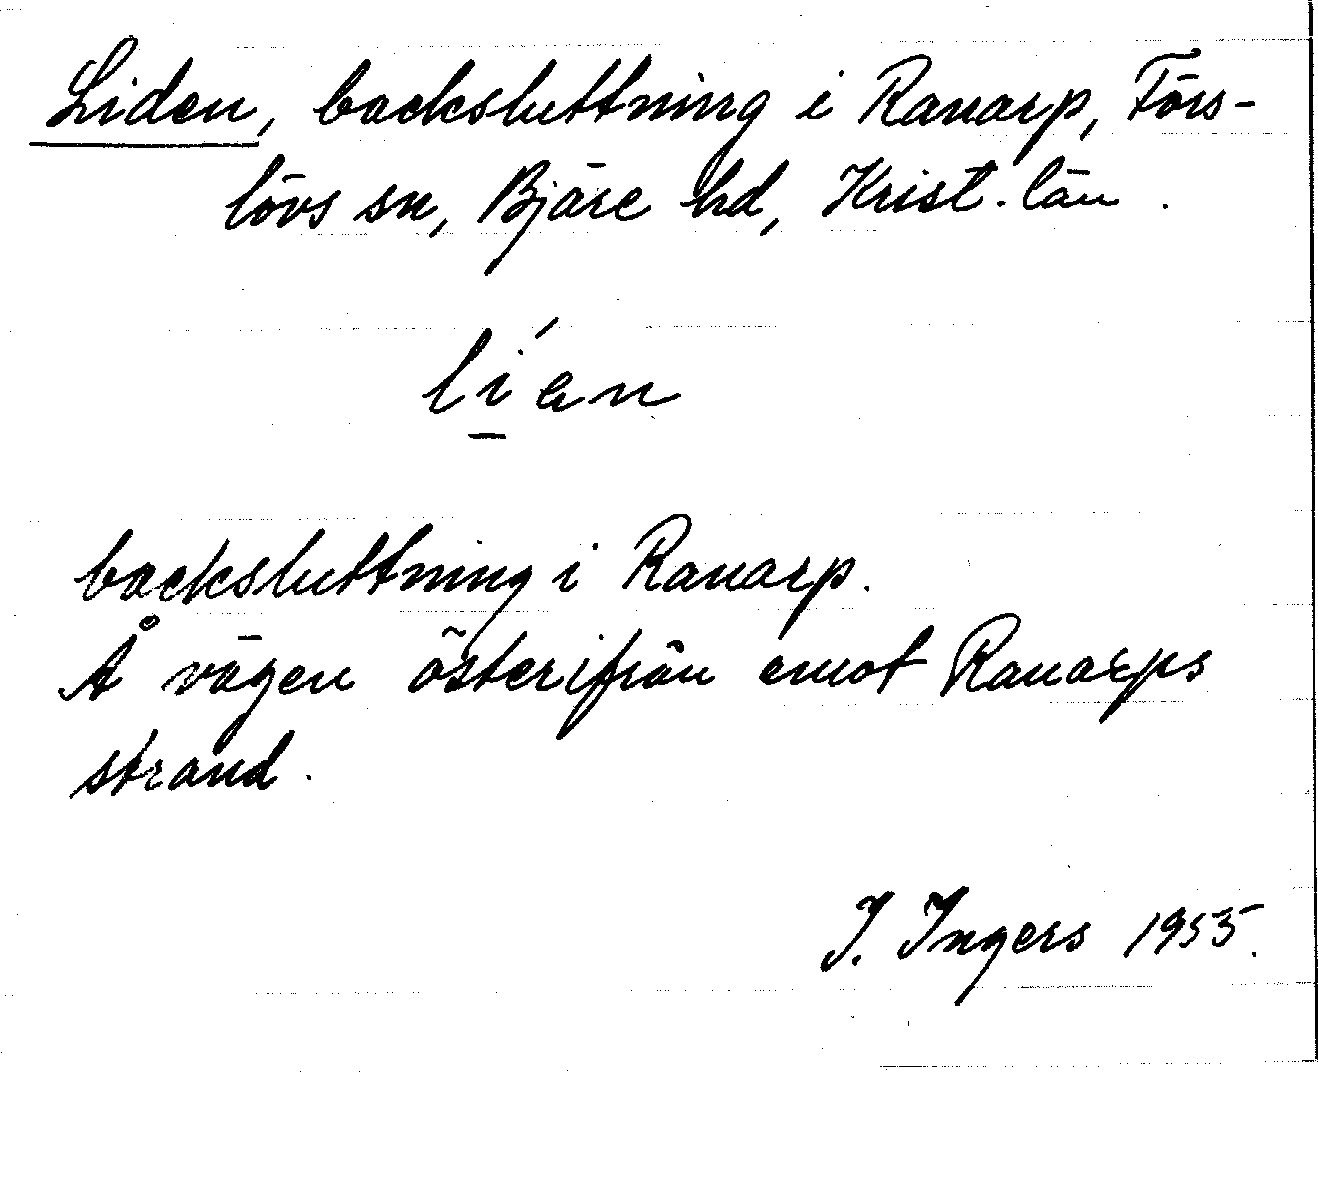 Liden, backsluttning i Ranarp, Förs-
lövs sn, Bjäre hd, Krist. län.
li´en
backsluttning i Ranarp.
Å vägen österifrån emot Ranarps
strand.
I. Ingers 1955.